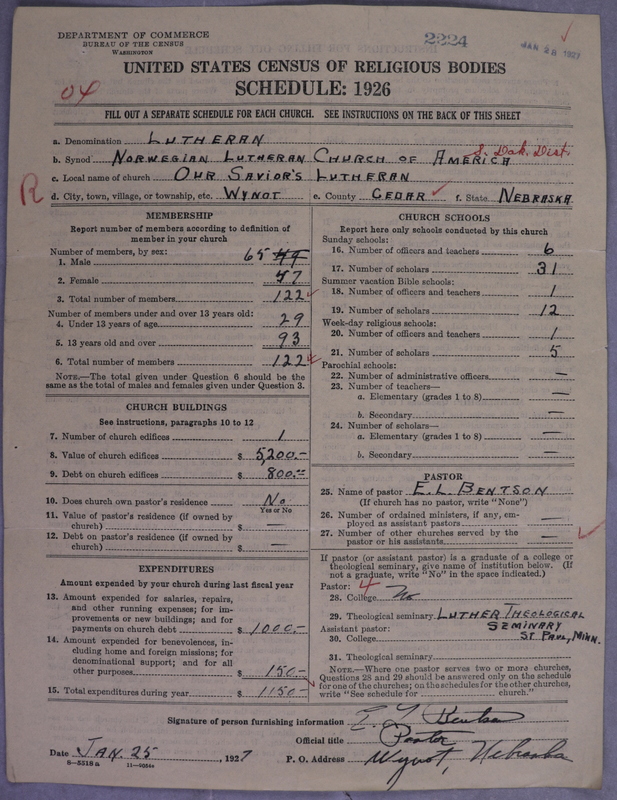 DEPARTMENT OF COMMERCE
BUREAU OF THE CENSUS
WASHINGTON
2224
JAN 28 1927
UNITED STATES CENSUS OF RELIGIOUS BODIES
SCHEDULE: 1926
04
FILL OUT A SEPARATE SCHEDULE FOR EACH CHURCH. SEE INSTRUCTIONS ON THE BACK OF THIS SHEET
a. Denomination LUTHERAN
b. Synod NORWEGIAN LUTHERAN CHURCH OF AMERICA S. Dak. Dist.
c. Local name of church OUR SAVIOR'S LUTHERAN
R
d. City, town, village, or township, etc. WYNOT e. County CEDAR f. State NEBRASKA
MEMBERSHIP
Report number of members according to definition of
member in your church
Number of members, by sex:
1. Male 65 49
2. Female 57
3. Total number of members 122
Number of members under and over 13 years old:
4. Under 13 years of age 29
5. 13 years old and over 93
6. Total number of members 122
NOTE.—The total given under Question 6 should be the
same as the total of males and females given under Question 3.
CHURCH BUILDINGS
See instructions, paragraphs 10 to 12
7. Number of church edifices 1
8. Value of church edifices $ 5,200.—
9. Debt on church edifices $ 800.—
10. Does church own pastor's residence No
Yes or No
11. Value of pastor's residence (if owned by
church) $ —
12. Debt on pastor's residence (if owned by
church) $ —
EXPENDITURES
Amount expended by your church during last fiscal year
13. Amount expended for salaries, repairs,
and other running expenses; for im-
provements or new buildings; and for
payments on church debt $ 1000.—
14. Amount expended for benevolences, in-
cluding home and foreign missions; for
denominational support; and for all
other purposes $ 150—
15. Total expenditures during year $ 1150—
CHURCH SCHOOLS
Report here only schools conducted by this church
Sunday schools:
16. Number of officers and teachers 6
17. Number of scholars 31
Summer vacation Bible schools:
18. Number of officers and teachers 1
19. Number of scholars 12
Week-day religious schools:
20. Number of officers and teachers 1
21. Number of scholars 5
Parochial schools:
22. Number of administrative officers —
23. Number of teachers—
a. Elementary (grades 1 to 8) —
b. Secondary —
24. Number of scholars—
a. Elementary (grades 1 to 8) —
b. Secondary —
PASTOR
25. Name of pastor E. L. BENTSON
(If church has no pastor, write "None")
26. Number of ordained ministers, if any, em-
ployed as assistant pastors —
27. Number of other churches served by the
pastor or his assistants —
If pastor (or assistant pastor) is a graduate of a college or
theological seminary, give name of institution below. (If
not a graduate, write "No" in the space indicated.)
Pastor: 4
28. College No
29. Theological seminary LUTHER THEOLOGICAL
Assistant pastor: SEMINARY
30. College ST. PAUL, MINN.
31. Theological seminary
NOTE.—Where one pastor serves two or more churches,
Questions 28 and 29 should be answered only on the schedule
for one of the churches; on the schedules for the other churches,
write "See schedule for church."
Signature of person furnishing information E. L. Bentson
Official title Pastor
Date JAN. 25, 1927 P. O. Address Wynot, Nebraska
8—5518 a 11—9064